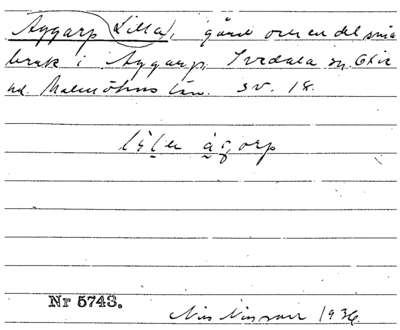 Aggarp Lilla, gård och en del små
bruk i Aggarp, Svedala sn, Oxie
hd. Malmöhus län. SV. 18.
lilla ågarp
Nr 5743.
Nils Nilsson 1936